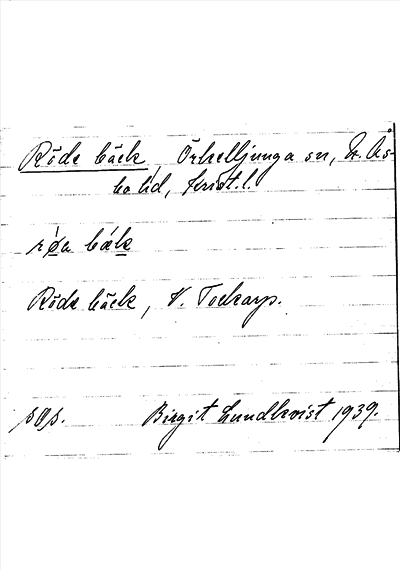 Röde bäck, Örkelljunga sn, N. Ås-
bo hd, Krist. l.
røa bæk
Röde bäck, V. Tockarp.
sOp.
Birgit Lundkvist 1939.